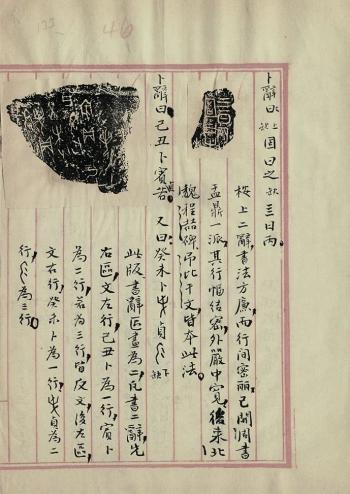 46
卜辭曰上缺固曰之缺三日丙
按上二辭書法方廉而行间密麗已開周書
盂鼎一派其行幅结密外嚴中寬後来北
魏程喆碑吊比干文皆本此法
卜辭曰己丑卜賓 又曰癸未卜㞢貞 下缺
此版書辭區畫為二凡書二辭先
右區文左行己丑卜為一行賓卜
為二行若為三行皆反文後左區
文右行癸未卜為一行㞢貞為二
行 為三行